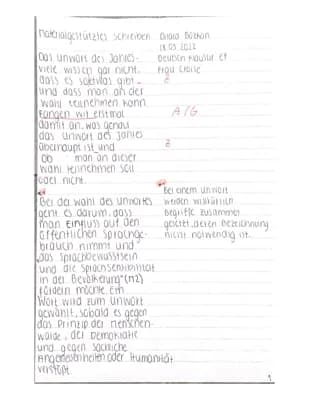 Materialgestütztes schreiben
Chiara Bozkan
18.05.2022
Das unwort des Jahres-
Deutsch Klausur EF
viele wissen gar nicht,
Frau
dass es sowas gibt
z
und dass man an der
wahl teilnehmen kann.
Fangen wir erstmal
A/G
damit an, was genau
das unwort des Jahres
überhaupt ist und
z
ob man an dieser
wahl teilnehmen soll
oder nicht.
Bei der wahl des unwortes
geht es darum, dass
man Einfluss auf den
öffentlichen sprachge-
brauch nimmt und
"das sprachbewusstsein
und die sprachsensibilität
in der Bevölkerung" (M2)
fördern möchte. Ein
Wort wird zum unwort
gewählt, sobald es gegen
das Prinzip der menschen-
würde, der Demokratie
und gegen sachliche
Angemessenheiten oder Humanität
verstößt.
Bei einem unwort
werden willkürlich
Begriffe zusammen
gesetzt, deren Bezeichnung
nicht notwendig ist.
1